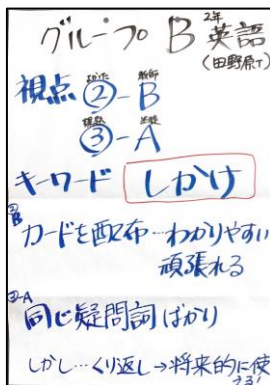 グループB 2年 英語
(田野原T)
視点 ②-B 教師
③-A 生徒
キーワード しかけ
②B
カードを配布…わかりやすい
頑張れる
③-A
同じ疑問詞ばかり
しかし…くり返し→将来的に使
える!